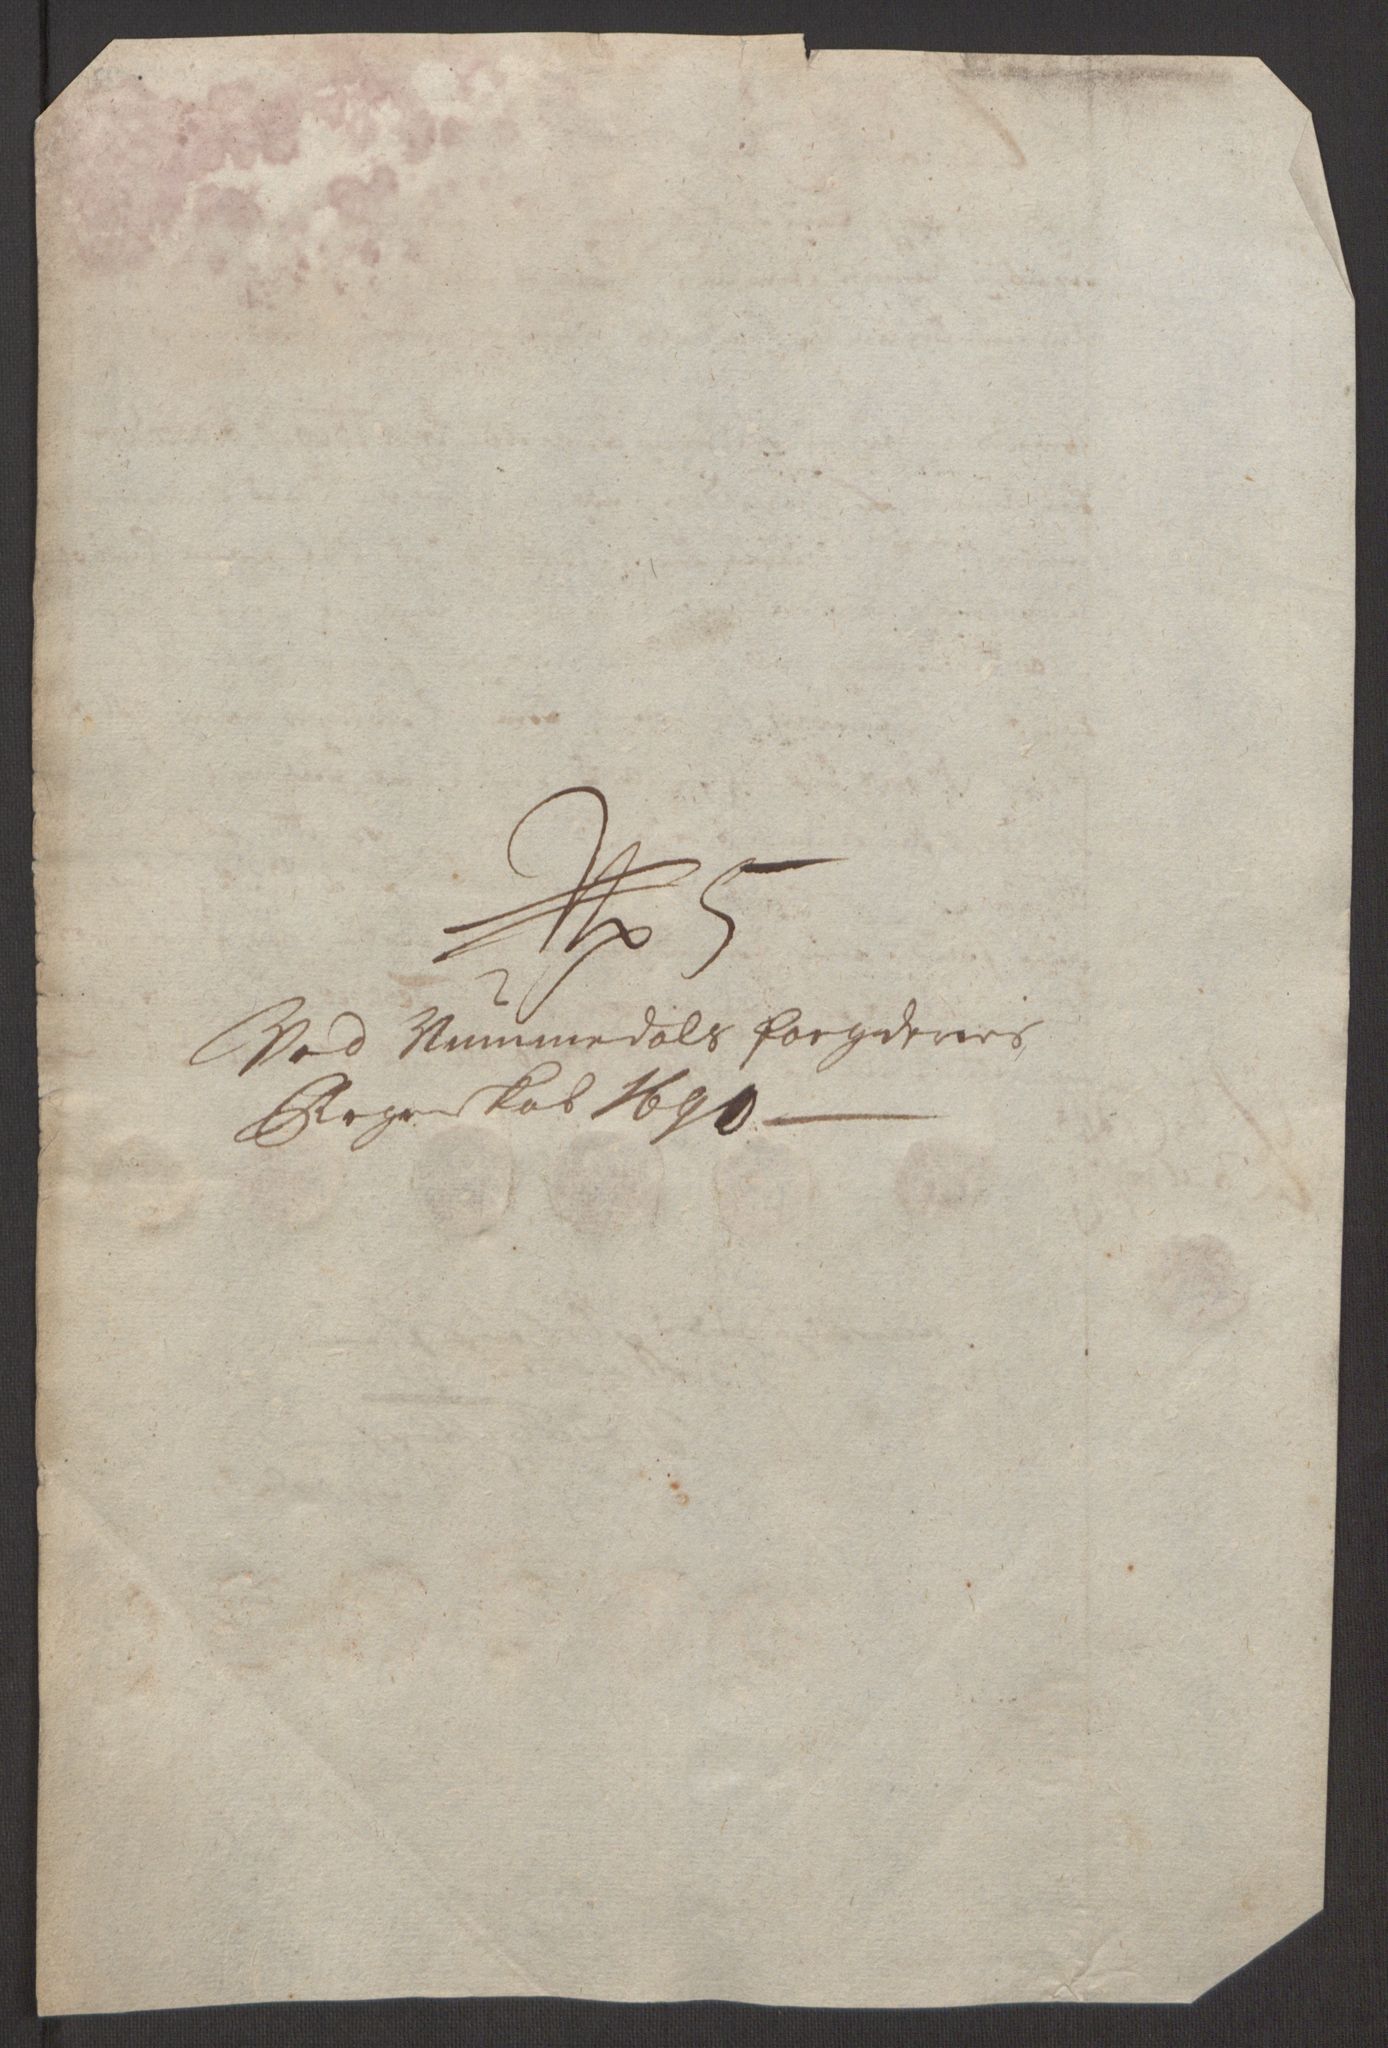 No 5
Ved Nummedals fougderies
Regenskab 1690